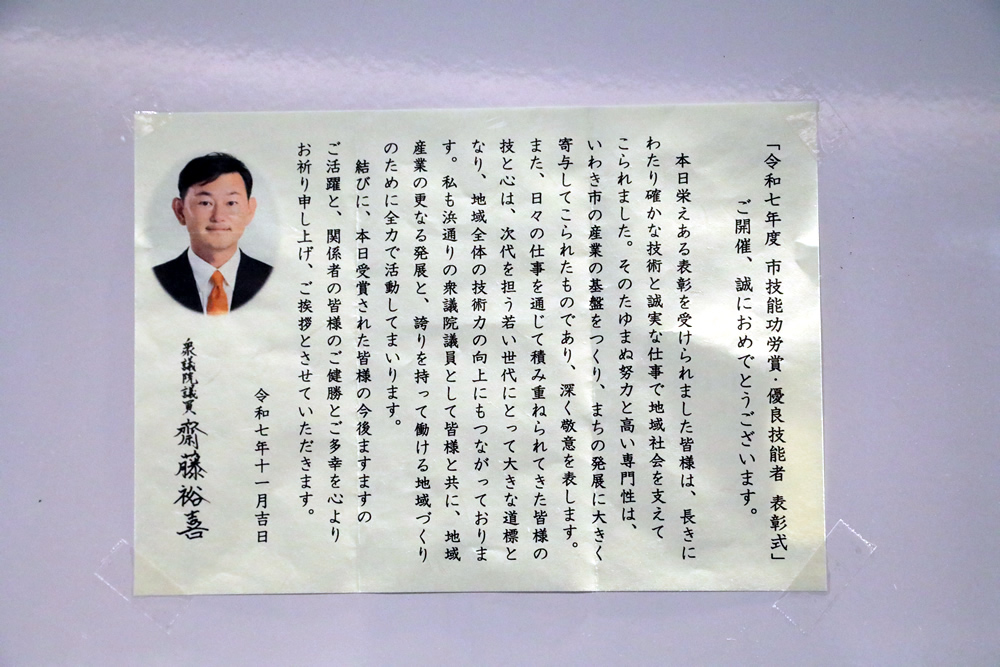 「令和七年度 市技能功労賞・優良技能者 表彰式」
ご開催、誠におめでとうございます。
本日栄えある表彰を受けられました皆様は、長きに
わたり確かな技術と誠実な仕事で地域社会を支えて
こられました。そのたゆまぬ努力と高い専門性は、
いわき市の産業の基盤をつくり、まちの発展に大きく
寄与してこられたものであり、深く敬意を表します。
また、日々の仕事を通じて積み重ねられてきた皆様の
技と心は、次代を担う若い世代にとって大きな道標と
なり、地域全体の技術力の向上にもつながっておりま
す。私も浜通りの衆議院議員として皆様と共に、地域
産業の更なる発展と、誇りを持って働ける地域づくり
のために全力で活動してまいります。
結びに、本日受賞された皆様の今後ますますの
ご活躍と、関係者の皆様のご健勝とご多幸を心より
お祈り申し上げ、ご挨拶とさせていただきます。
令和七年十一月吉日
衆議院議員 齋藤裕喜